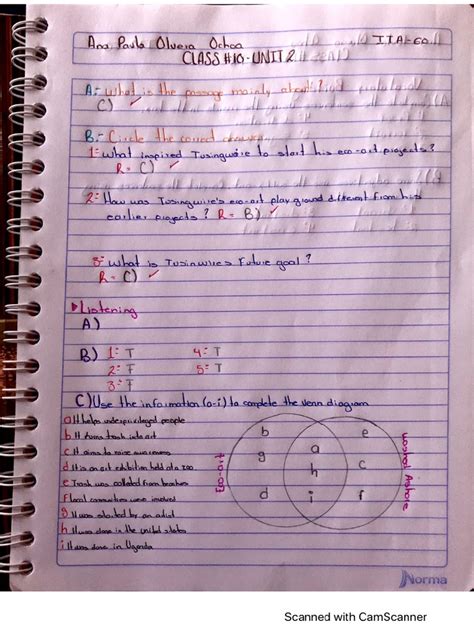 Ana Paula Olvera Ochoa
CLASS #10-UNIT 2
A.- What is the passage mainly about?
C) ✓
B.- Circle the correct
1: What inspired Tusingwire to start his eco-art projects?
R= C) ✓
2: How was Tusingwire's eco-art play ground different from his
earlier projects? R= B) ✓
3: What is Tusinwires Future goal?
R= C) ✓
Listening
A)
B) 1: T 4: T
2: F 5: T
3: T
C) Use the information (a-i) to complete the venn diagram
a It helps underprivileged people
b It turns trash into art
c It aims to raise
d It is an art exhibition held at a zoo
e Trash was collected from beaches
f Local communities were involved
g It was started by an artist
h It was done in the united states
i It was done in Uganda
Eco-art
b
g
d
a
h
i
e
c
f
Washed Ashore
Norma
Scanned with CamScanner